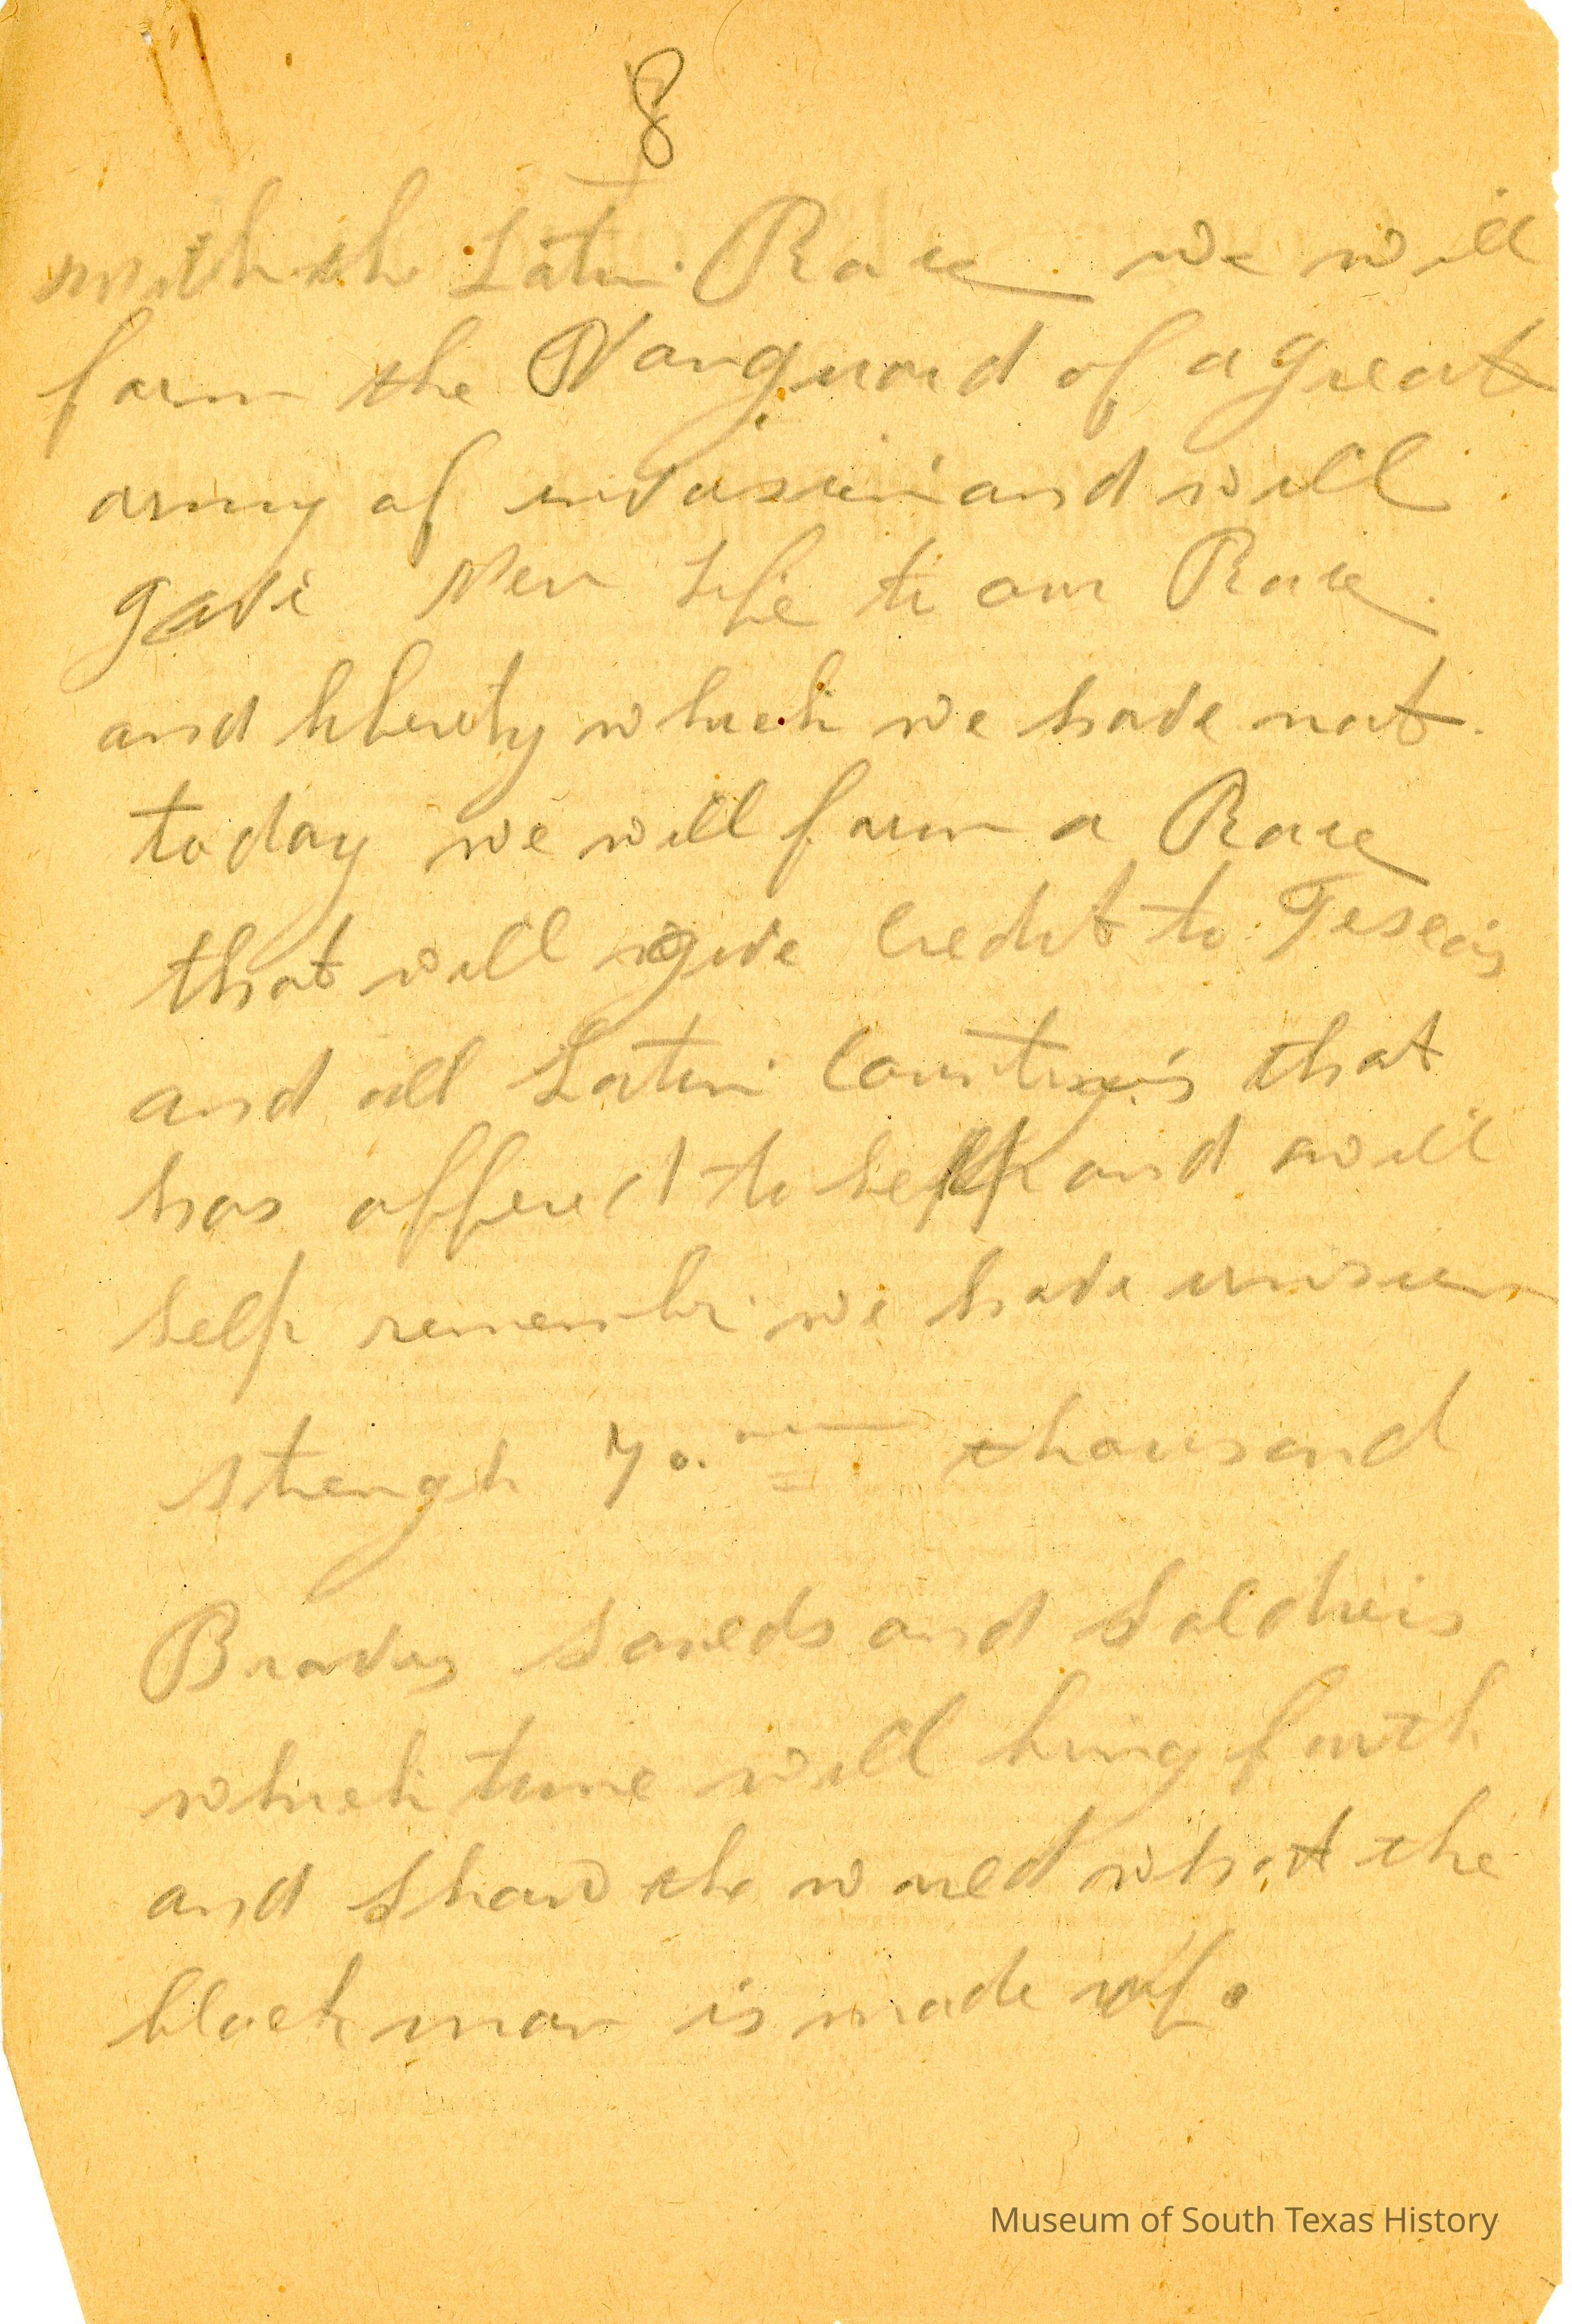 8
with th Latin Race we will
form the Vanguard of a great
army of invasion and will
gave New Life to our Race.
and liberty which we have not.
today we will form a Race
that will give credit to
and all Latin that
has offered to help and will
help remember we have
strengh 70. thousand
Braves and Soldiers
which time will bring forth
and Show the world what the
black man is made of.
Museum of South Texas History